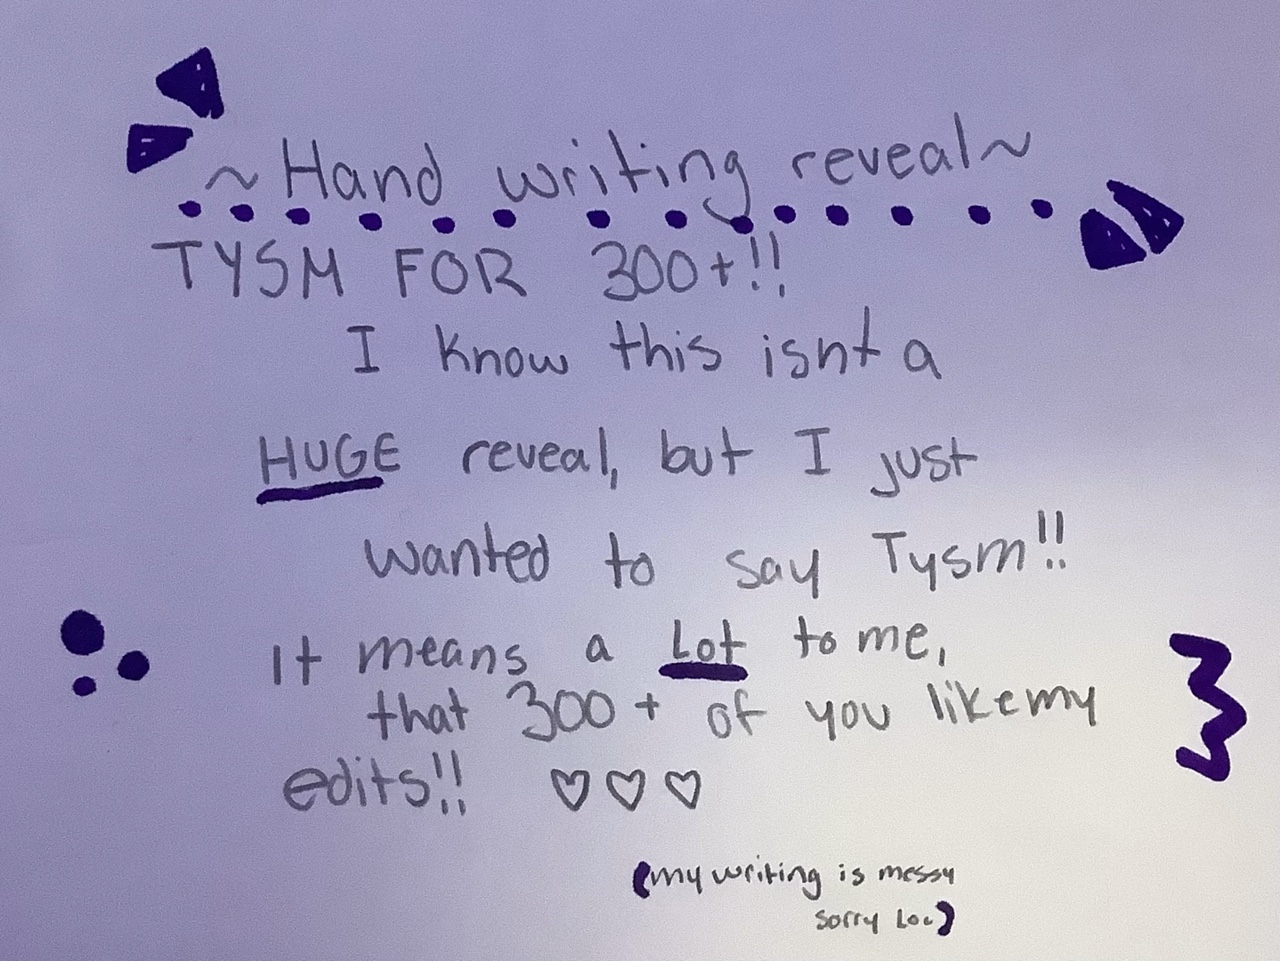 ~Hand writing reveal~
TYSM FOR 300+!!
I know this isnt a
HUGE reveal, but I just
wanted to say Tysm!!
It means a Lot to me,
that 300+ of you like my
edits!! ♡♡♡
(my writing is messy
sorry Lol)